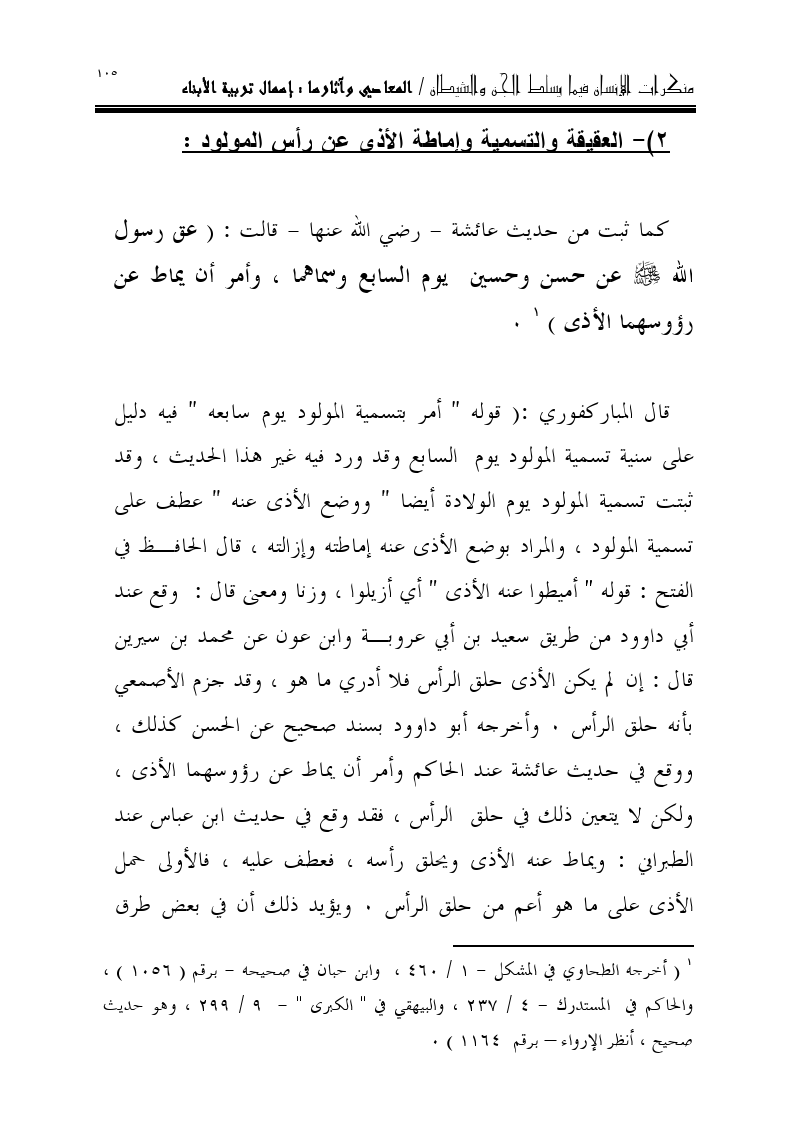 ١٠٥
منكرات الإنسان فيما يسلط الجن والشيطان / المعاصي وآثارها : إهمال تربية الأبناء
٢)- العقيقة والتسمية وإماطة الأذى عن رأس المولود :
كما ثبت من حديث عائشة - رضي الله عنها - قالت : ( عق رسول
الله ﷺ عن حسن وحسين يوم السابع وسماهما ، وأمر أن يماط عن
رؤوسهما الأذى ) ١ ٠
قال المباركفوري :( قوله " أمر بتسمية المولود يوم سابعه " فيه دليل
على سنية تسمية المولود يوم السابع وقد ورد فيه غير هذا الحديث ، وقد
ثبتت تسمية المولود يوم الولادة أيضا " ووضع الأذى عنه " عطف على
تسمية المولود ، والمراد بوضع الأذى عنه إماطته وإزالته ، قال الحافـــظ في
الفتح : قوله " أميطوا عنه الأذى " أي أزيلوا ، وزنا ومعنى قال : وقع عند
أبي داوود من طريق سعيد بن أبي عروبـــة وابن عون عن محمد بن سيرين
قال : إن لم يكن الأذى حلق الرأس فلا أدري ما هو ، وقد جزم الأصمعي
بأنه حلق الرأس ٠ وأخرجه أبو داوود بسند صحيح عن الحسن كذلك ،
ووقع في حديث عائشة عند الحاكم وأمر أن يماط عن رؤوسهما الأذى ،
ولكن لا يتعين ذلك في حلق الرأس ، فقد وقع في حديث ابن عباس عند
الطبراني : ويماط عنه الأذى ويحلق رأسه ، فعطف عليه ، فالأولى حمل
الأذى على ما هو أعم من حلق الرأس ٠ ويؤيد ذلك أن في بعض طرق
١ ( أخرجه الطحاوي في المشكل - ١ / ٤٦٠ ، وابن حبان في صحيحه - برقم ( ١٠٥٦ ) ،
والحاكم في المستدرك - ٤ / ٢٣٧ ، والبيهقي في " الكبرى " - ٩ / ٢٩٩ ، وهو حديث
صحيح ، أنظر الإرواء – برقم ١١٦٤ ) ٠